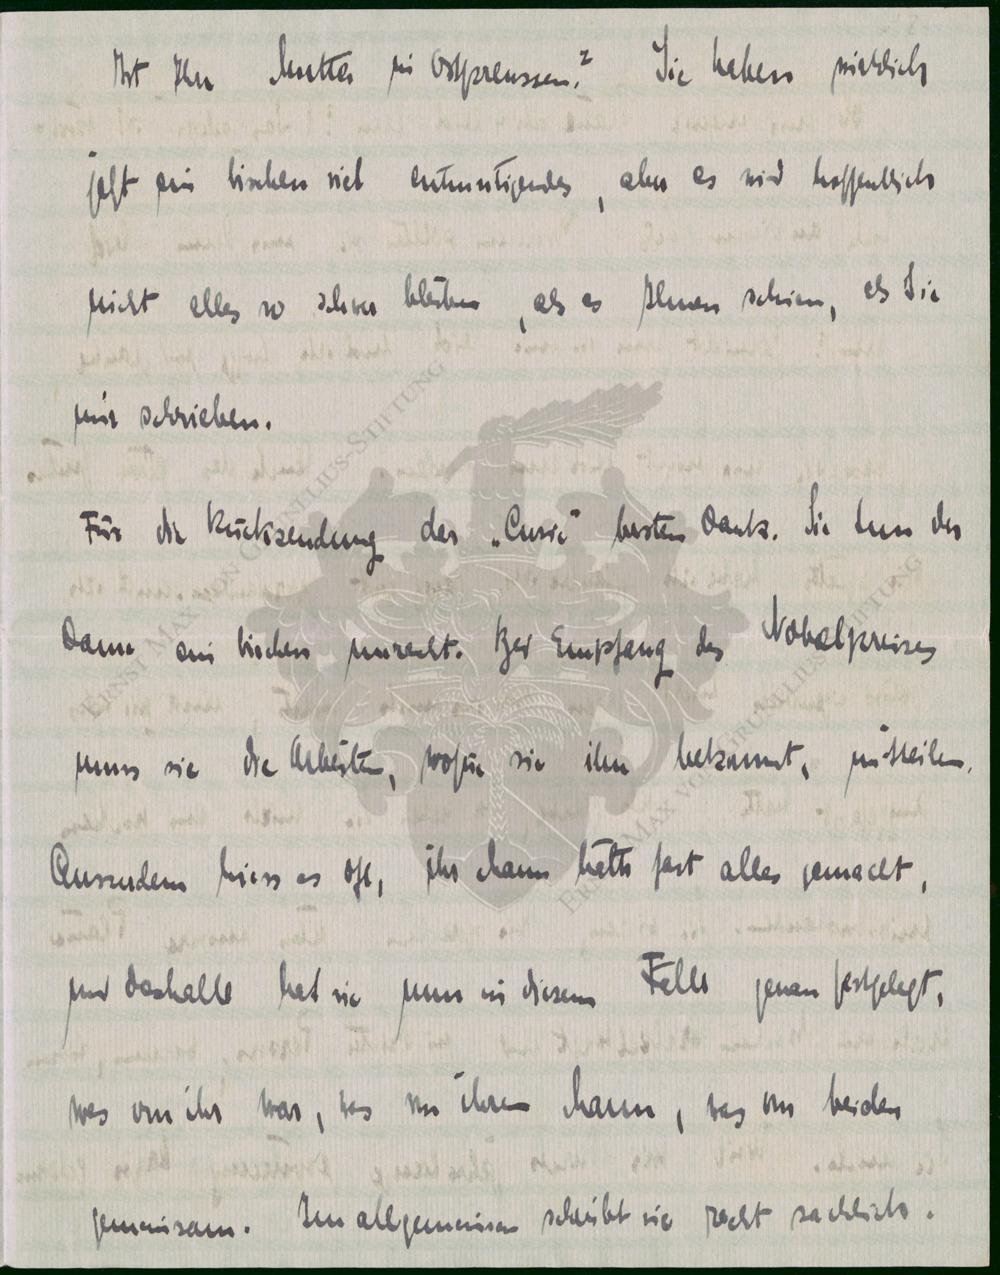 Ist Ihre Mutter in Ostpreussen? Sie haben wirklich
jetzt ein bischen viel entmutigendes, aber es wird hoffentlich
nicht alles so schwer bleiben, als es Ihnen schien, als Sie
mir schrieben.
Für die Rücksendung der „Curie" besten Dank. Sie tun der
Dame ein bischen unrecht. Bei Empfang des Nobelpreises
muss sie die Arbeiten, wofür sie ihn bekommt, mitteilen.
Ausserdem hiess es oft, ihr Mann hätte fast alles gemacht,
und deshalb hat sie nun in diesem Falle genau festgelegt,
was von ihr war, was von ihrem Mann, was von beiden
gemeinsam. Im allgemeinen schreibt sie recht sachlich.
ERNST MAX VON GRUNELIUS-STIFTUNG
ERNST MAX VON GRUNELIUS-STIFTUNG